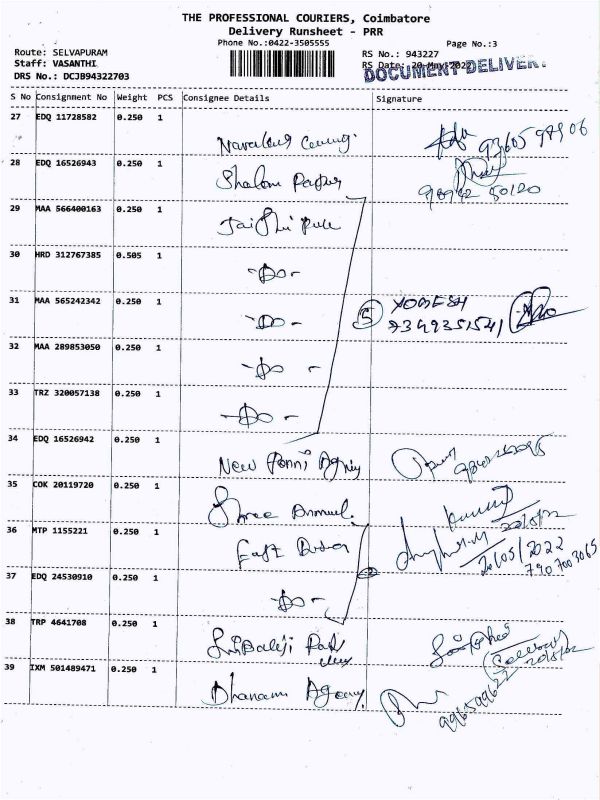 THE PROFESSIONAL COURIERS, Coimbatore
Delivery Runsheet - PRR
Phone No.:0422-3505555
Page No.:3
Route: SELVAPURAM
RS No.: 943227
Staff: VASANTHI
RS Date: 20-May-2022
DOCUMENT DELIVERY
DRS No.: DCJB94322703
S No Consignment No Weight PCS Consignee Details Signature
27 EDQ 11728582 0.250 1
28 EDQ 16526943 0.250 1
Shalom Paper
29 MAA 566400163 0.250 1
30 HRD 312767385 0.505 1
-Do-
31 MAA 565242342 0.250 1
-Do-
5 YOGESH
32 MAA 289853050 0.250 1
-Do-
33 TRZ 320057138 0.250 1
-Do-
34 EDQ 16526942 0.250 1
New Ponni Agency
35 COK 20119720 0.250 1
Shree
20/5/22
36 MTP 1155221 0.250 1
East
20/05/2022
37 EDQ 24530910 0.250 1
-Do-
38 TRP 4641708 0.250 1
Sri Balaji
20/5/22
39 IXM 501489471 0.250 1
Dhanam Agency